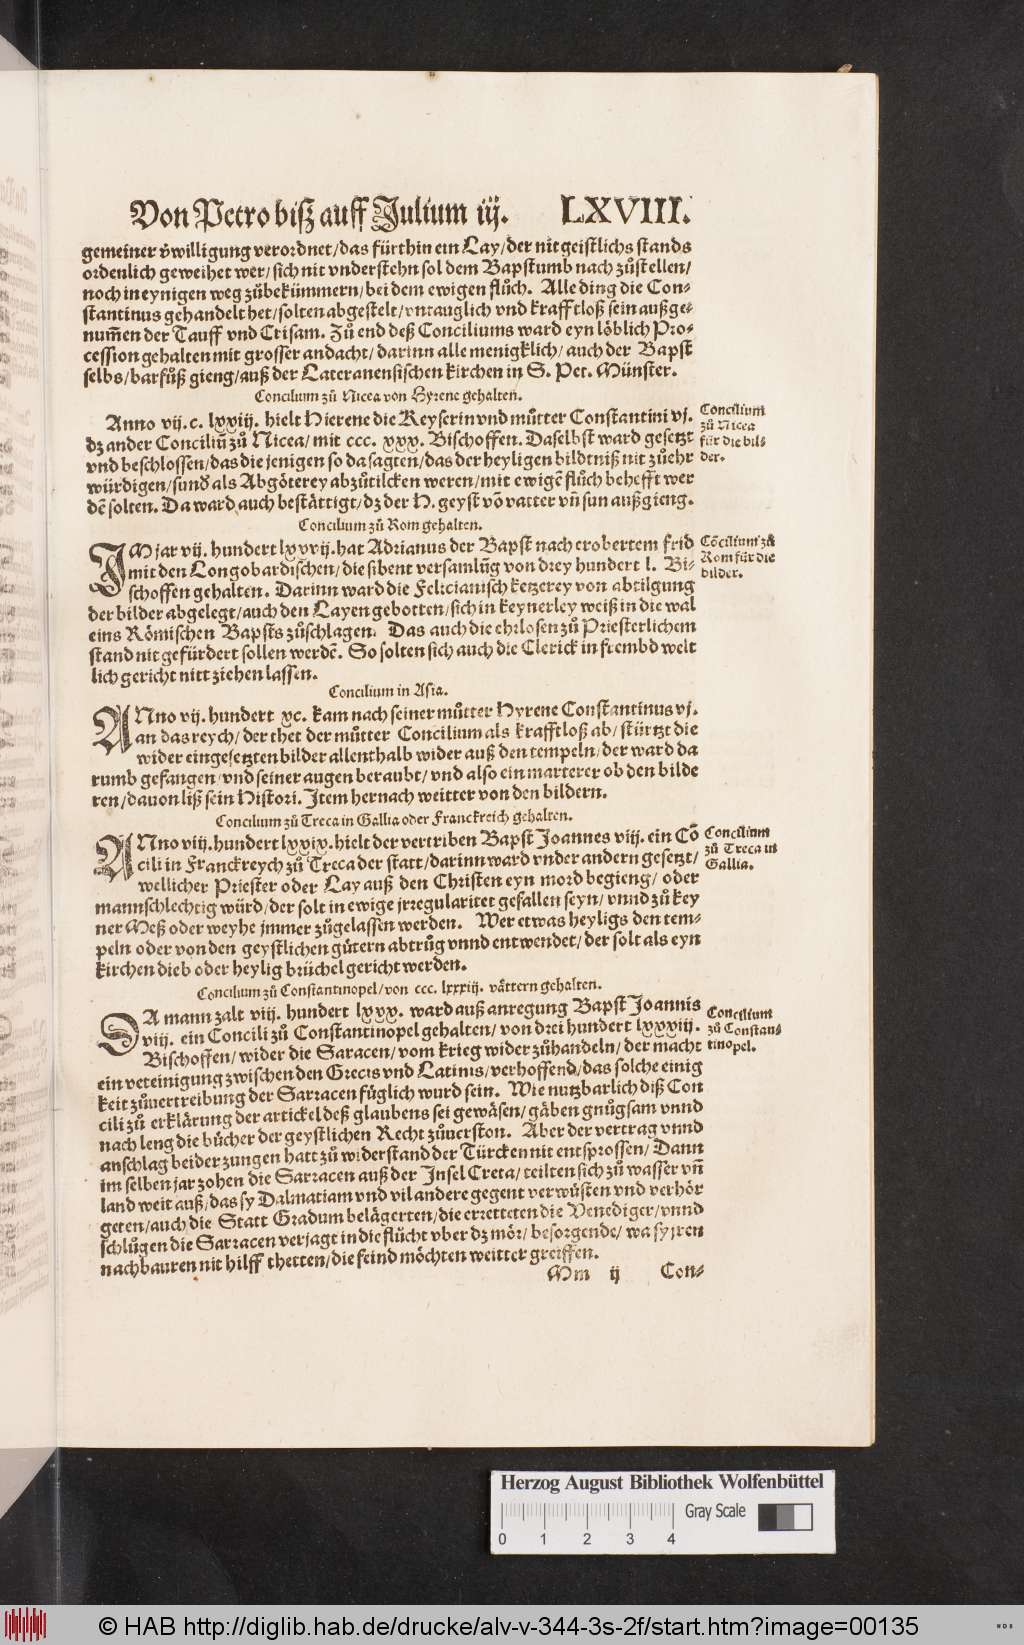 Von Petro biß auff Julium iij. LXVIII.
gemeiner v̈willigung verordnet/das fürthin ein Lay/der nit geistlichs stands
ordenlich geweihet wer/sich nit vnderstehn sol dem Bapstumb nach zůstellen/
noch in eynigen weg zůbekümmern/bei dem ewigen flůch. Alle ding die Con-
stantinus gehandelt het/solten abgestelt/vntauglich vnd krafftloß sein außge-
num̃en der Tauff vnd Crisam. Zů end deß Conciliums ward eyn löblich Pro-
cession gehalten mit grosser andacht/darinn alle menigklich/auch der Bapst
selbs/barfůß gieng/auß der Lateranensischen kirchen in S. Pet. Münster.
Concilium zů Nicea von Hyrene gehalten.
Anno vij.c. lxxiij. hielt Hierene die Keyserin vnd můtter Constantini vj.
dz ander Conciliũ zů Nicea/mit ccc. xxx. Bischoffen. Daselbst ward gesetzt
vnd beschlossen/das die jenigen so da sagten/das der heyligen bildtniß nit zůehr
würdigen/sund̾ als Abgöterey abzůtilcken weren/mit ewigẽ flůch behefft wer
dẽ solten. Da ward auch bestättigt/dz der H. geyst võ vatter vñ sun außgieng.
Concilium zů Nicea für die bil-
der.
Concilium zů Rom gehalten.
IM jar vij. hundert lxxvij. hat Adrianus der Bapst nach erobertem frid
mit den Longobardischen/die sibent versamlũg von drey hundert l. Bi-
schoffen gehalten. Darinn ward die Felicianisch ketzerey von abtilgung
der bilder abgelegt/auch den Layen gebotten/sich in keynerley weiß in die wal
eins Römischen Bapsts zůschlagen. Das auch die ehrlosen zů Priesterlichem
stand nit gefürdert sollen werdẽ. So solten sich auch die Clerick in frembd welt
lich gericht nitt ziehen lassen.
Cõcilium zů
Rom für die
bilder.
Concilium in Asia.
ANno vij. hundert xc. kam nach seiner můtter Hyrene Constantinus vj.
an das reych/der thet der můtter Concilium als krafftloß ab/stürtzt die
wider eingesetzten bilder allenthalb wider auß den tempeln/der ward da
rumb gefangen/vnd seiner augen beraubt/vnd also ein marterer ob den bilde
ren/dauon liß sein Histori. Item hernach weitter von den bildern.
Concilium zů Treca in Gallia oder Franckreich gehalten.
ANno viij. hundert lxxix. hielt der vertriben Bapst Joannes viij. ein Cõ
cili in Franckreych zů Treca der statt/darinn ward vnder andern gesetzt/
wellicher Priester oder Lay auß den Christen eyn mord begieng/ oder
mannschlechtig würd/der solt in ewige jrregularitet gefallen seyn/vnnd zů key
ner Meß oder weyhe jmmer zůgelassen werden. Wer etwas heyligs den tem-
peln oder von den geystlichen gůtern abtrůg vnnd entwendet/der solt als eyn
kirchen dieb oder heylig brüchel gericht werden.
Concilium
zů Treca in
Gallia.
Concilium zů Constantinopel/von ccc. lxxxiij. vättern gehalten.
DA mann zalt viij. hundert lxxx. ward auß anregung Bapst Joannis
viij. ein Concili zů Constantinopel gehalten/von drei hundert lxxxiij.
Bischoffen/wider die Saracen/vom krieg wider zůhandeln/der macht
ein vereinigung zwischen den Grecis vnd Latinis/verhoffend/das solche einig
keit zůuertreibung der Sarracen füglich wurd sein. Wie nutzbarlich diß Con
cili zů erklärung der artickel deß glaubens sei gewäsen/gäben gnůgsam vnnd
nach leng die bücher der geystlichen Recht zůuerston. Aber der vertrag vnnd
anschlag beider zungen hatt zů widerstand der Türcken nit entsprossen/Dann
im selben jar zohen die Sarracen auß der Insel Creta/teilten sich zů wasser vñ
land weit auß/das sy Dalmatiam vnd vil andere gegent verwüsten vnd verhör
geten/auch die Statt Gradum belägerten/die erretteten die Venediger/vnnd
schlůgen die Sarracen verjagt in die flůcht vber dz mör/besorgende/wa sy jren
nachbauren nit hilff thetten/die feind möchten weitter greiffen.
Concilium
zů Constan-
tinopel.
Mm ij Con-
Herzog August Bibliothek Wolfenbüttel
Gray Scale
0 1 2 3 4
© HAB http://diglib.hab.de/drucke/alv-v-344-3s-2f/start.htm?image=00135